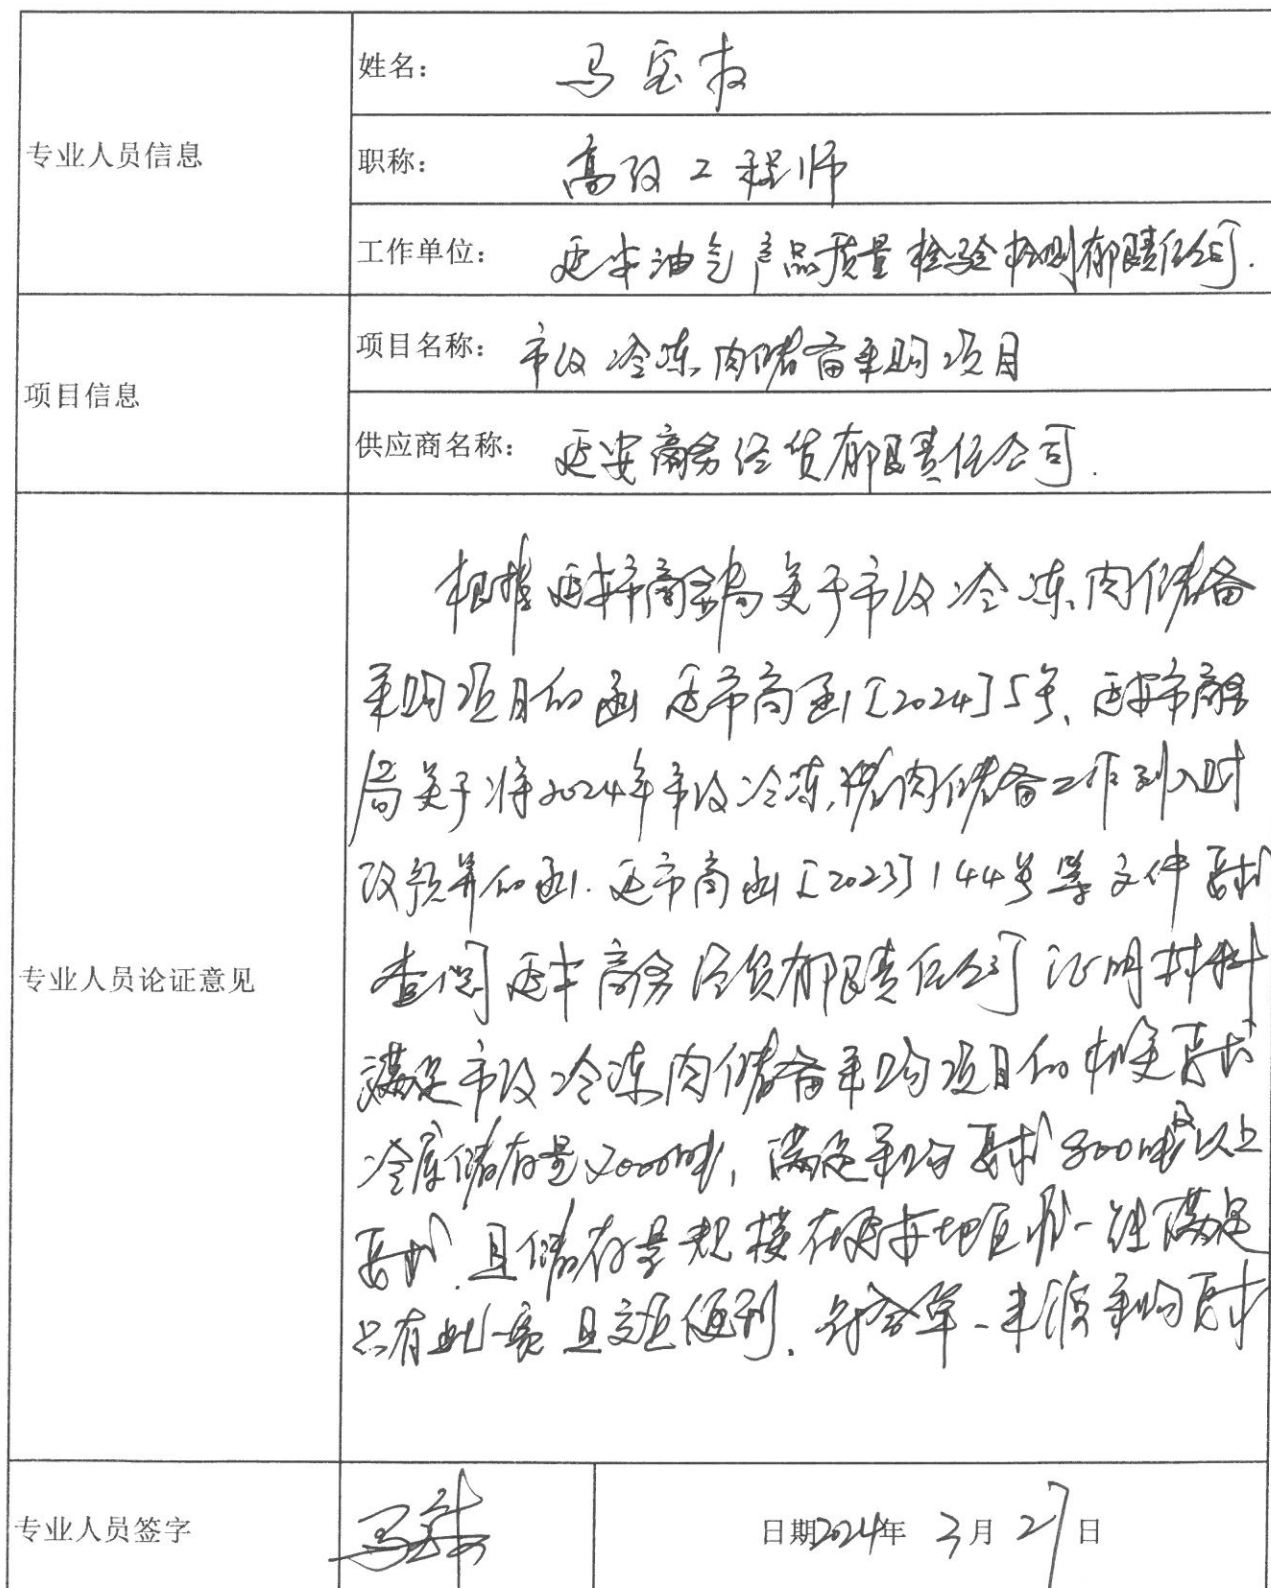 专业人员信息
姓名: 马宝
职称: 高级工程师
工作单位: 延安油气产品质量检验检测有限责任公司.
项目信息
项目名称: 市级冷冻肉储备采购项目
供应商名称: 延安商务经贸有限责任公司.
专业人员论证意见
根据延安市商务局关于市级冷冻肉储备
采购项目的函 延市商函[2024]5号、延安市商务
局关于将2024年市级冷冻猪肉储备工作列入财
政预算的函. 延市商函[2023]144号等文件要求
查阅延安商务经贸有限责任公司证明材料
满足市级冷冻肉储备采购项目的相关要求
冷库储存量2000吨, 满足采购要求800吨及以上
要求. 且储存量规模在延安地区唯一能满足
只有此一家 且交通便利. 符合单一来源采购要求
专业人员签字
马宝
日期2024年 3月 27日